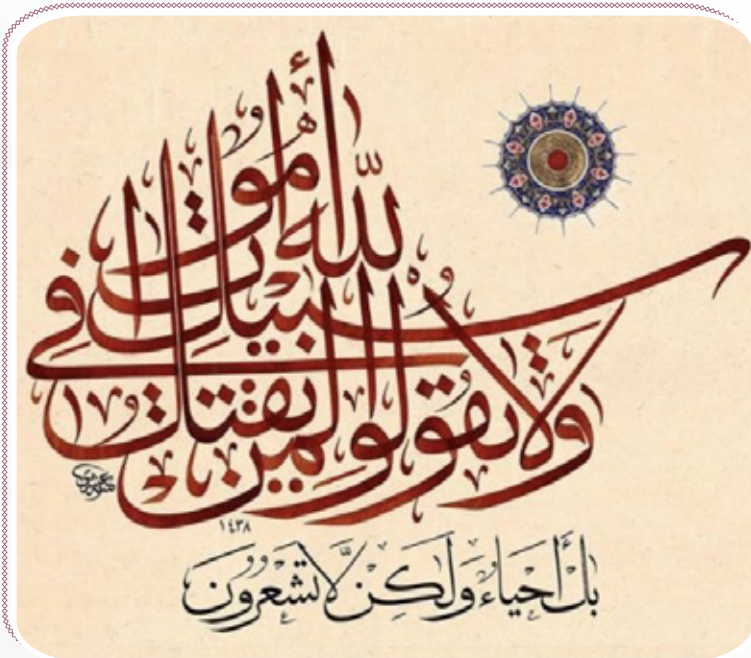 ولا تقولوا لمن يقتل في سبيل الله أموات
١٤٣٨
بل أحياء ولكن لا تشعرون